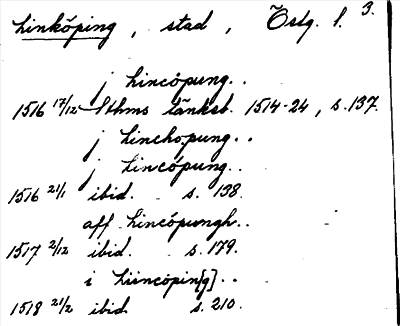 Linköping, stad, Östg. l. 3.
j Lincöpung..
1516 17/12 Sthms tänkeb. 1514-24, s. 137.
j Linchopung..
j Lincöpung..
1516 21/1 ibid. s. 138.
aff Lincöpungh..
1517 2/12 ibid. s. 179.
i Liincöpin[g]..
1518 21/2 ibid. s. 210.